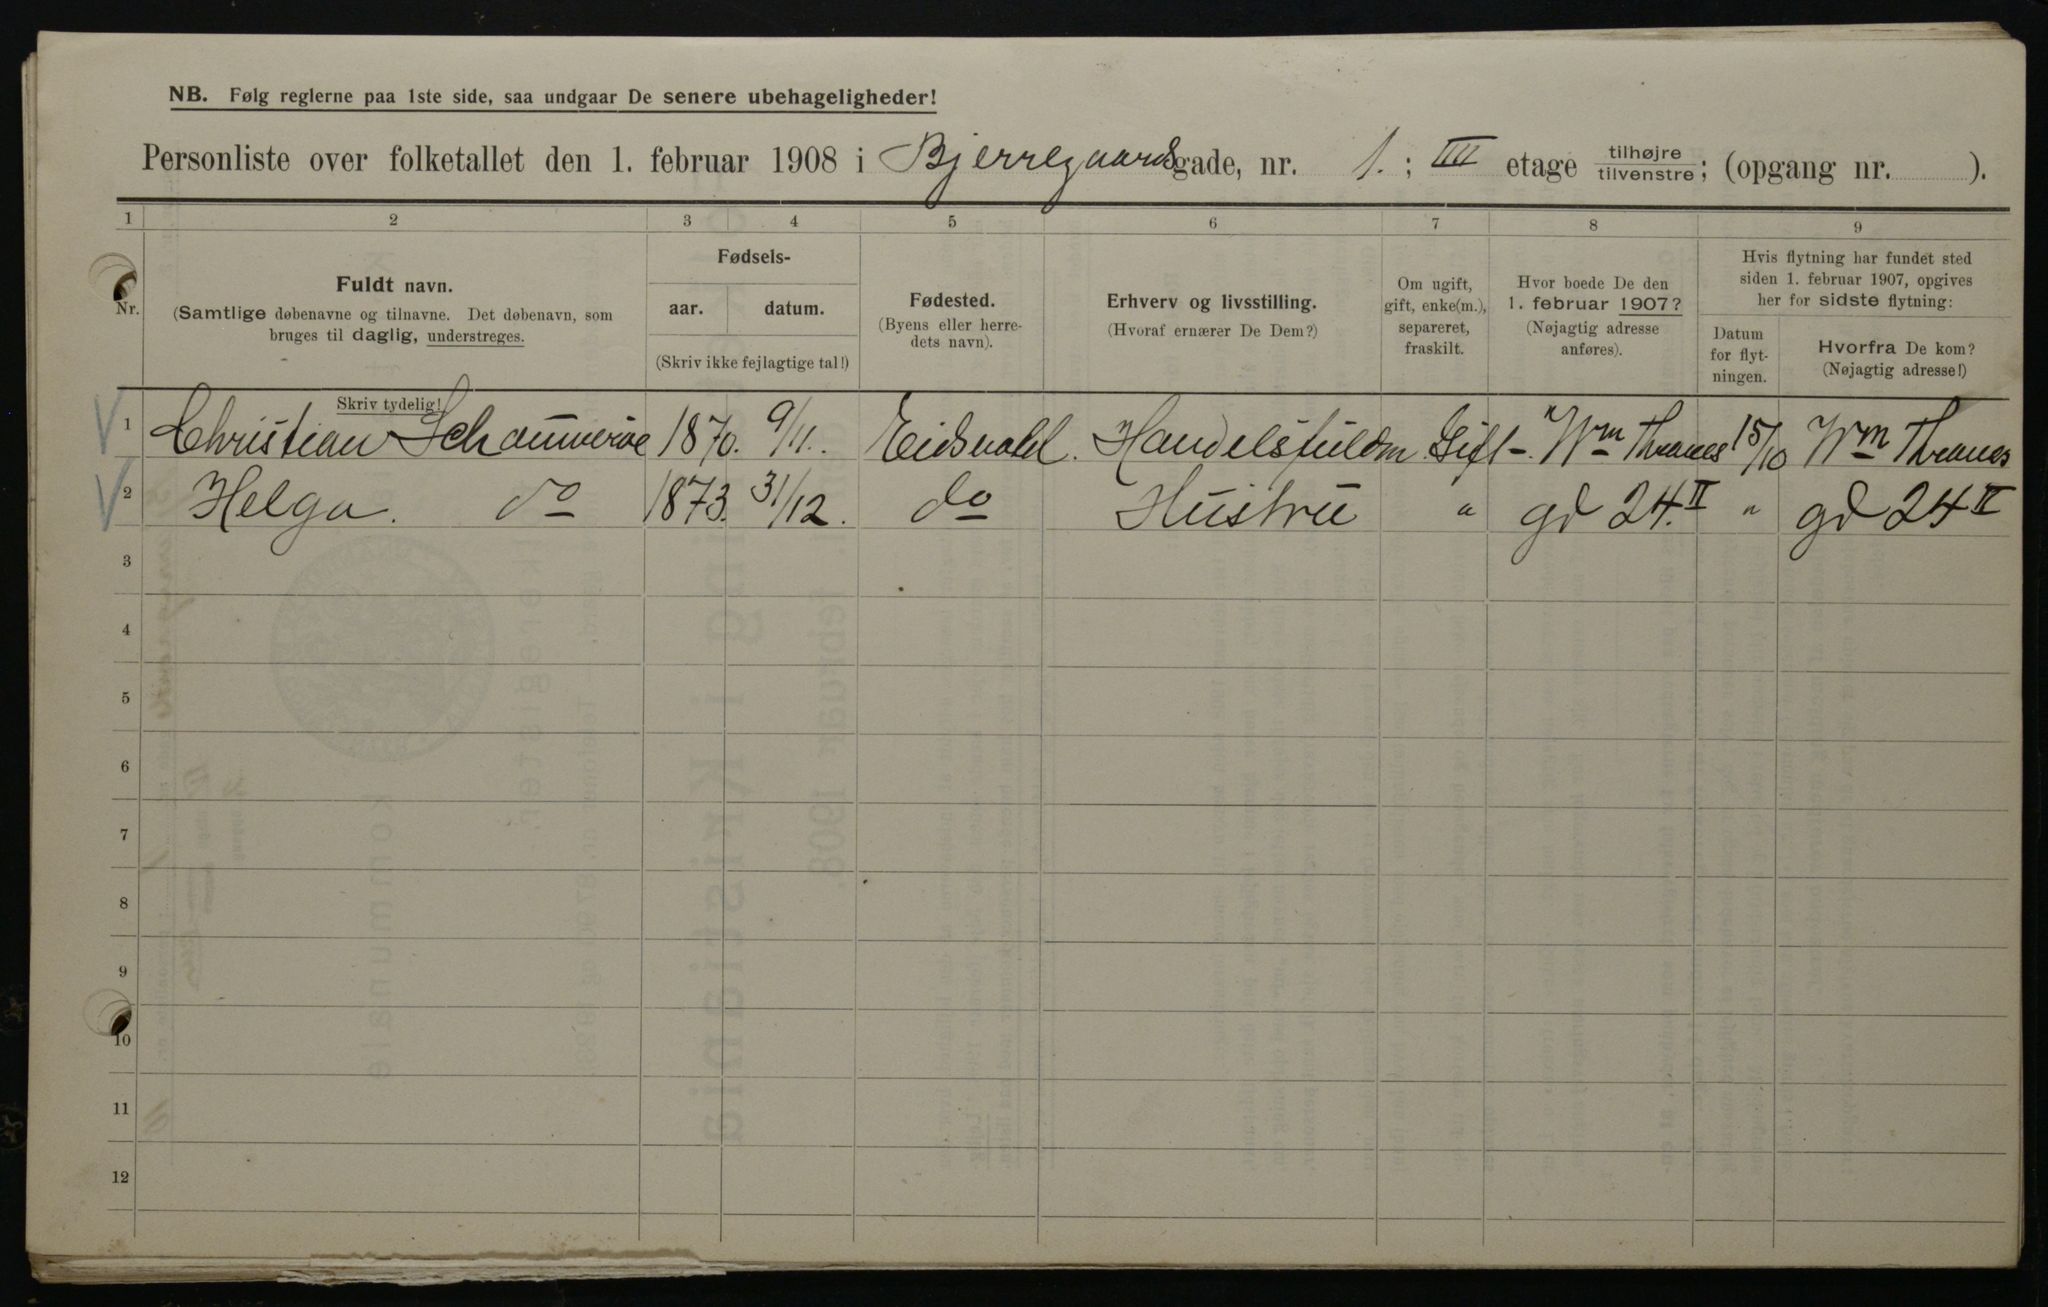 NB. Følg reglerne paa 1ste side, saa undgaar De senere ubehageligheder!
Personliste over folketallet den 1. februar 1908 i Bjerregaardsgade, nr. 1.; III etage tilhøjre tilvenstre; (opgang nr. ).
1 2 3 4 5 6 7 8 9
Nr.
Fuldt navn.
(Samtlige døbenavne og tilnavne. Det døbenavn, som
bruges til daglig, understreges.
Skriv tydelig!
Fødsels-
aar. datum.
(Skriv ikke fejlagtige tal!)
Fødested.
(Byens eller herre-
dets navn).
Erhverv og livsstilling.
(Hvoraf ernærer De Dem?)
Om ugift,
gift, enke(m.),
separeret,
fraskilt.
Hvor boede De den
1. februar 1907?
(Nøjagtig adresse
anføres).
Hvis flytning har fundet sted
siden 1. februar 1907, opgives
her for sidste flytning:
Datum
for flyt-
ningen.
Hvorfra De kom?
(Nøjagtig adresse!)
1 Christian 1870. 9/11. Eidsvold. Handelsfuldm. Gift Wm Thranes 15/10 Wm Thranes
2 Helga. do 1873. 31/12. do Hustru " gd 24. II " gd 24 II
3
4
5
6
7
8
9
10
11
12